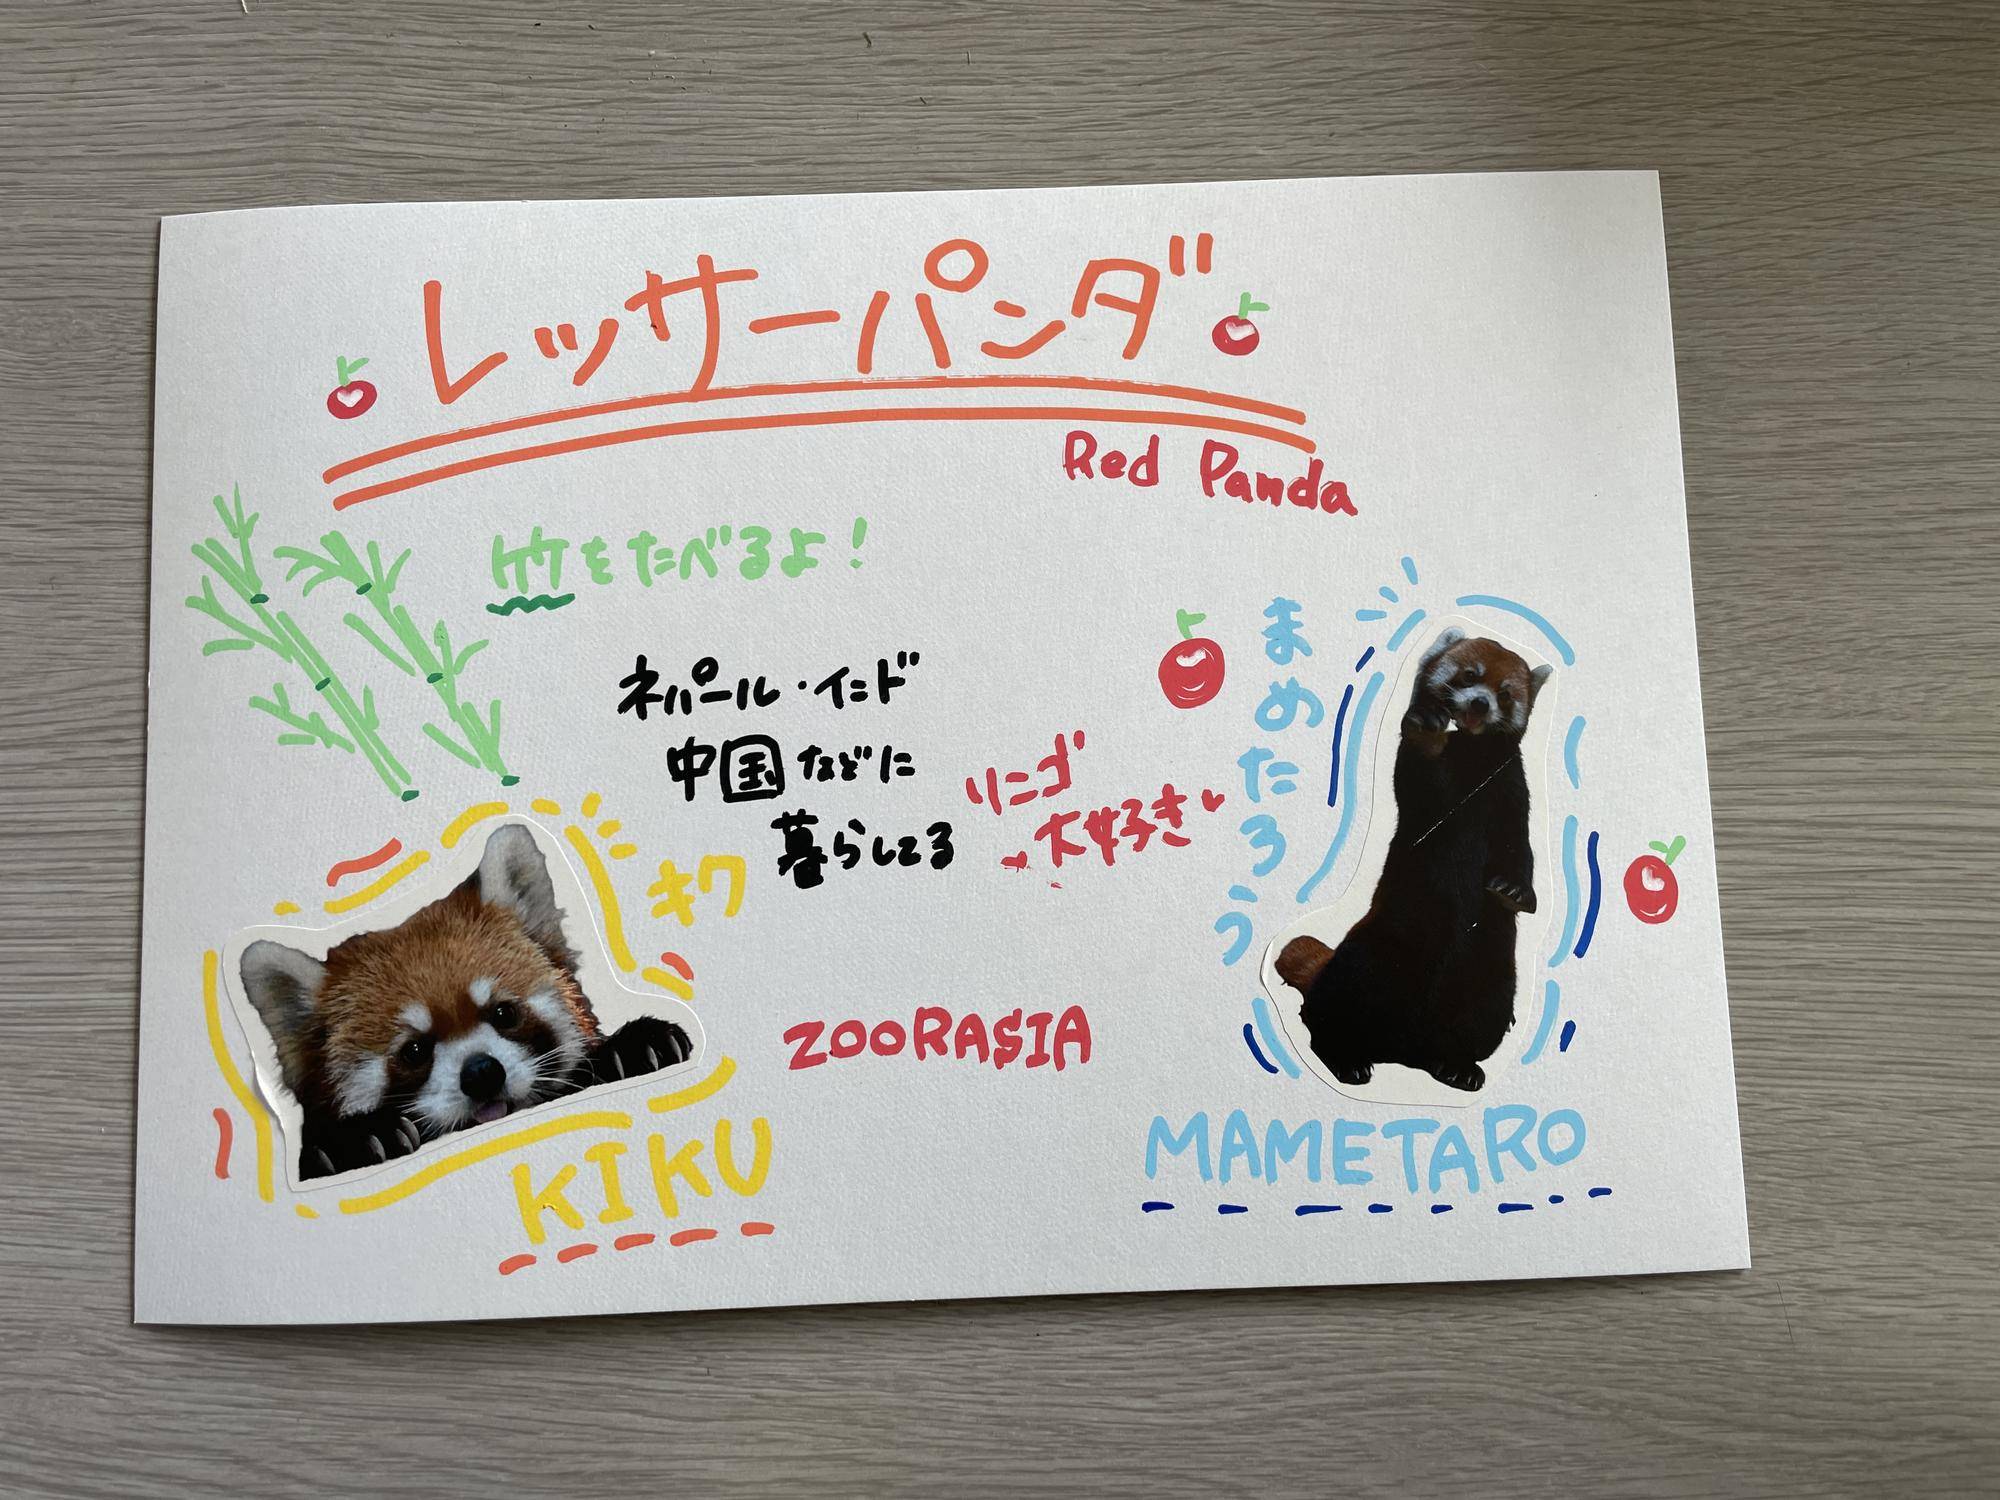 レッサーパンダ
Red Panda
竹をたべるよ!
ネパール・インド
中国などに
暮らしてる
リンゴ
大好き
まめたろう
キク
ZOORASIA
KIKU
MAMETARO